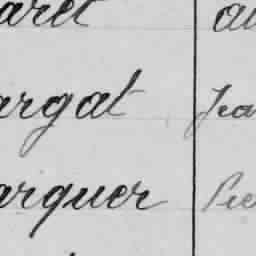 aret au
argat Jea
arquer Pie